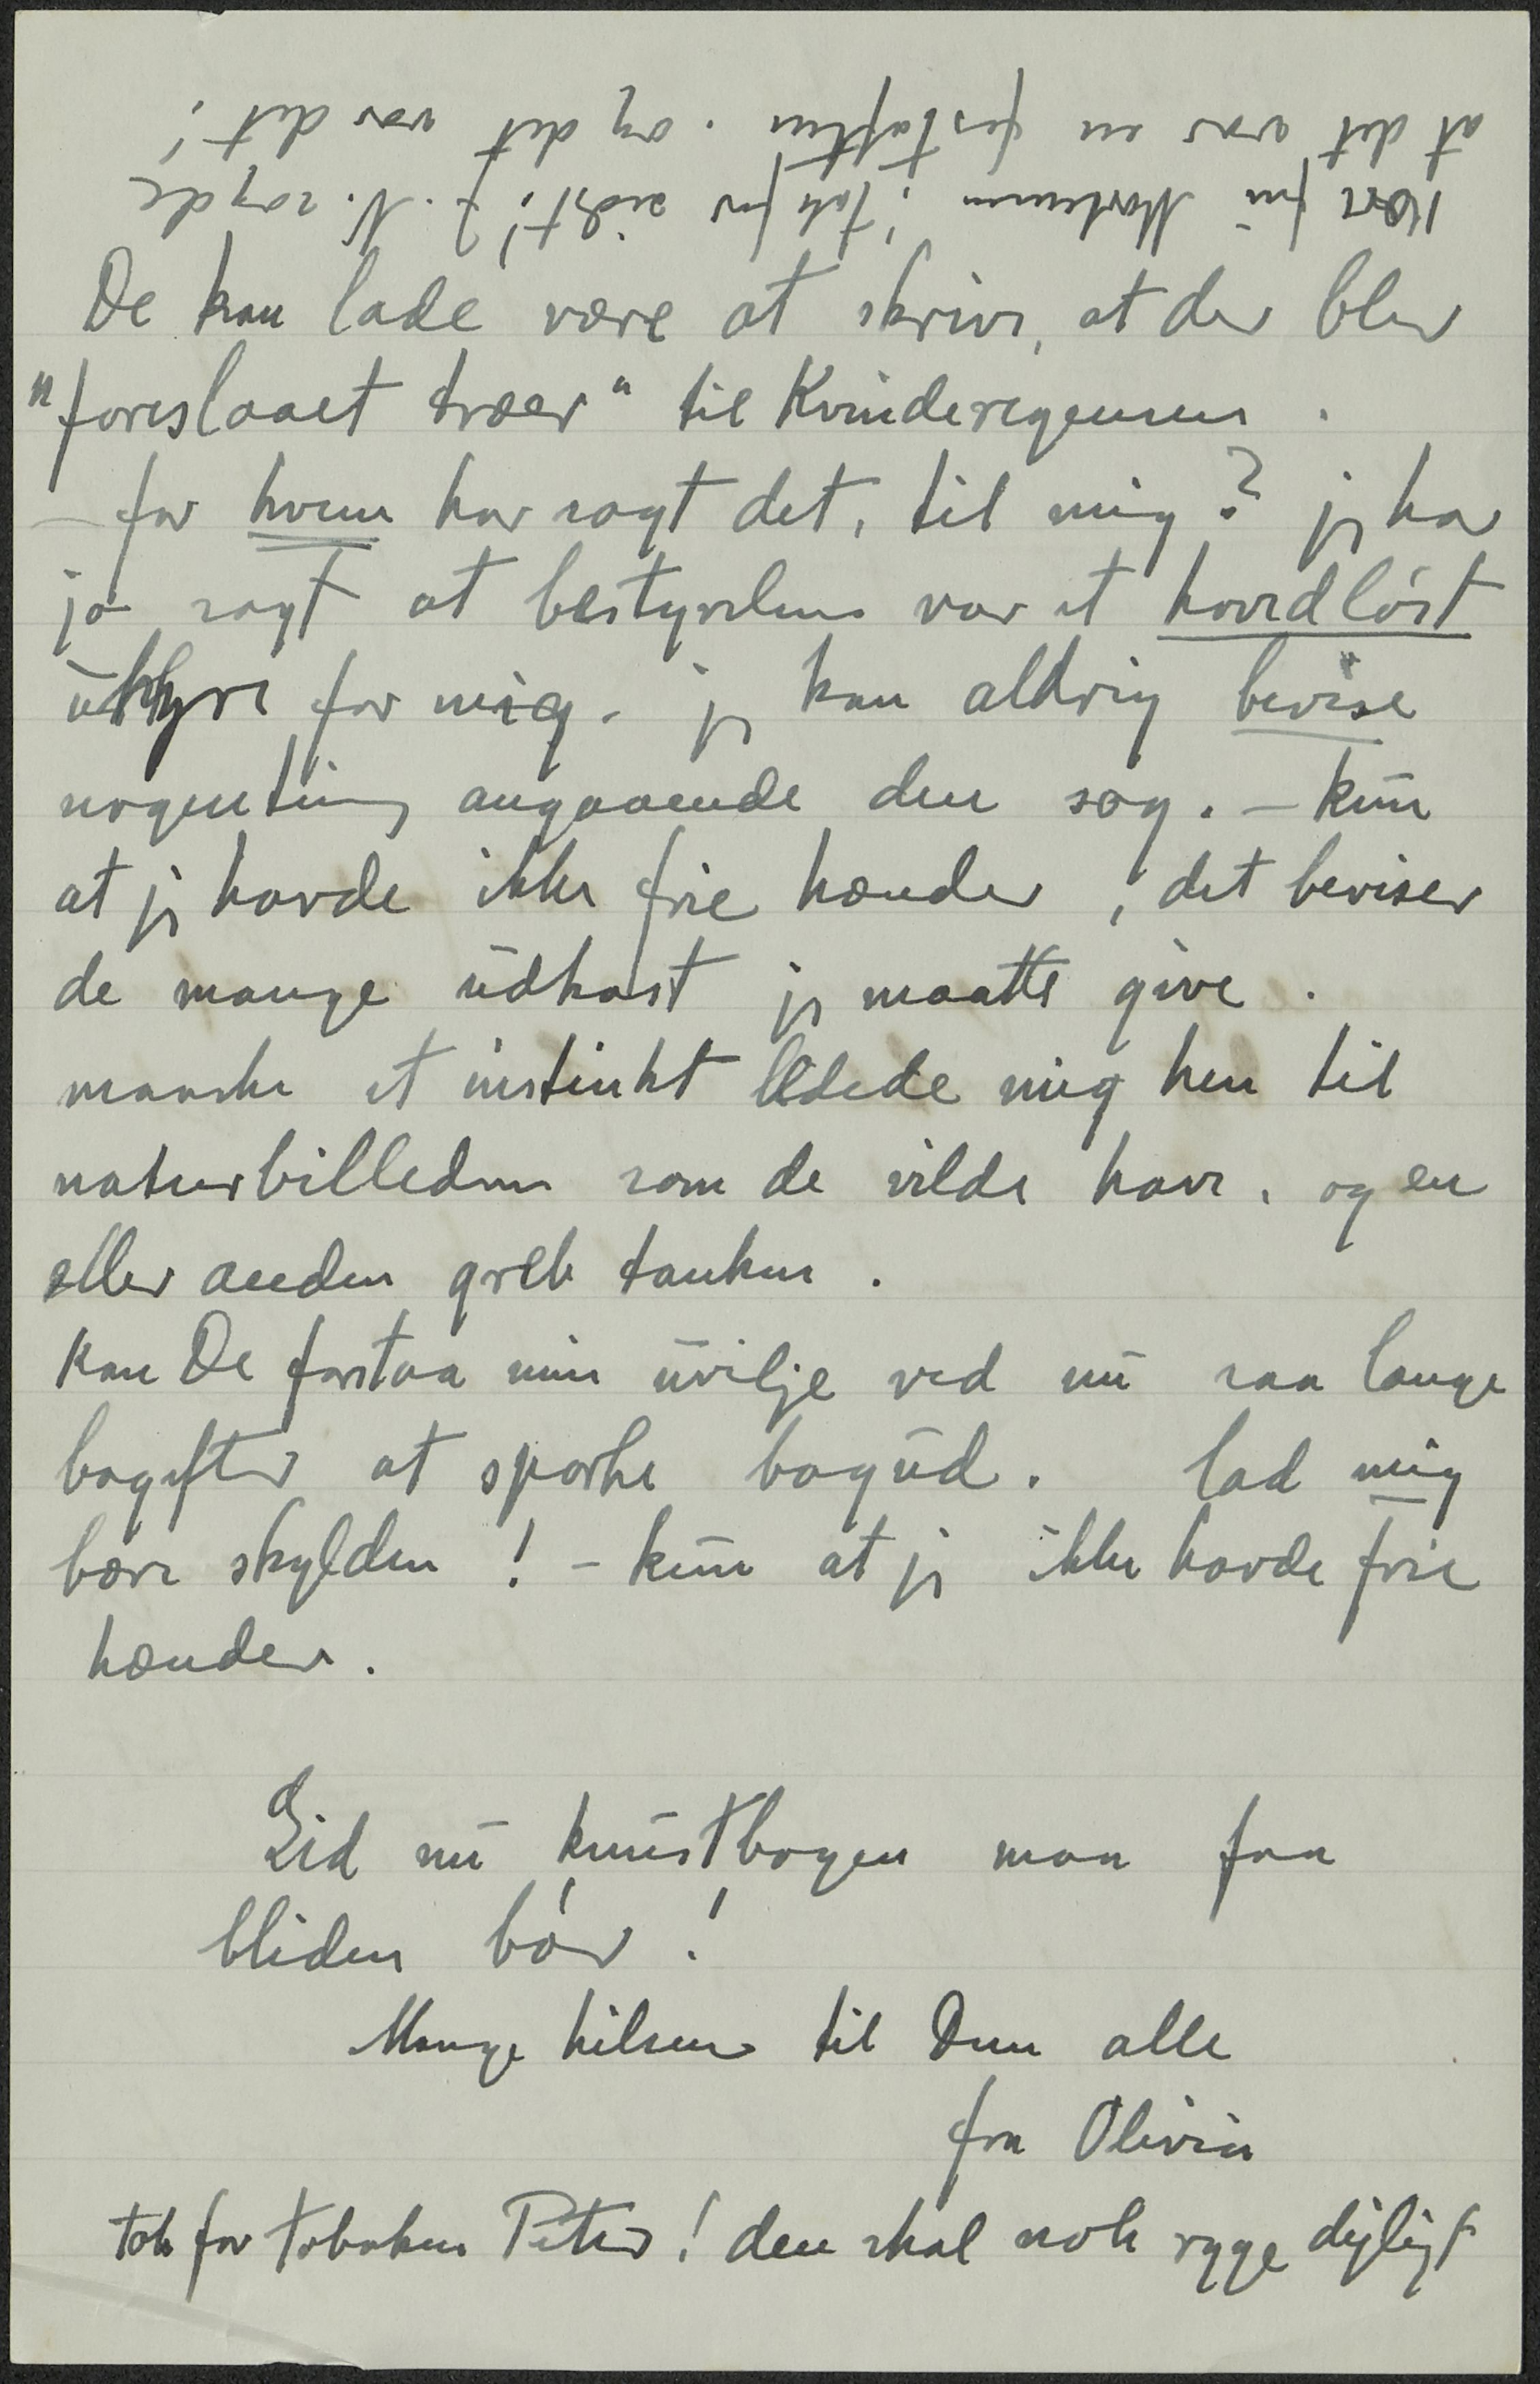 Kære fru Mortensen, tak for sidst! J. N. sagde
at det var en festaften. og det var det!
De kan lade være at skrive, at der blev
"foreslaaet træer" til Kvinderegensen.
– for hvem har sagt det, til mig? jeg har
jo sagt at bestyrelsen var et hovedløst
uhyre for mig. jeg kan aldrig bevise
nogenting angaaende den sag. – kun
at jeg havde ikke frie hænder, det beviser
de mange udkast jeg maatte give.
maaske et instinkt ledede mig hen til
naturbilleder som de vilde have. og en
eller anden greb tanken.
Kan De forstaa min uvilje ved nu saa lange
bagefter at sparke bagud. lad mig
bære skylden! – kun at jeg ikke havde frie
hænder.
Gid nu kunstbogen maa faa
bliden bør!
Mange hilsner til Dem alle
fra Olivia
Tak for Tobaken Peter! den skal nok ryge dejligt